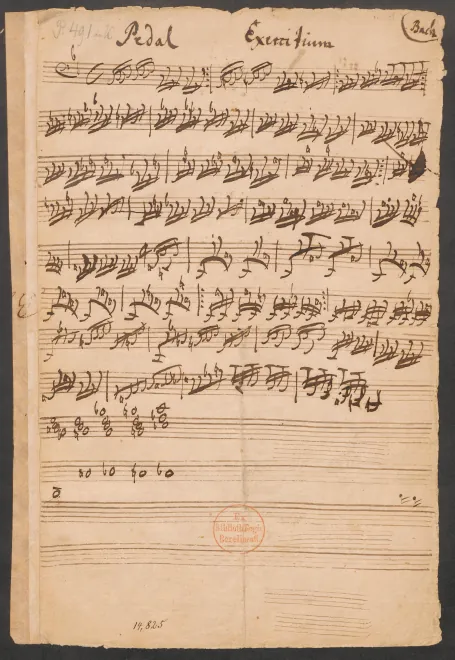 P 491
Pedal Exercitium Bach
Ex
Bibliotheca Regia
Berolinensi
14,825